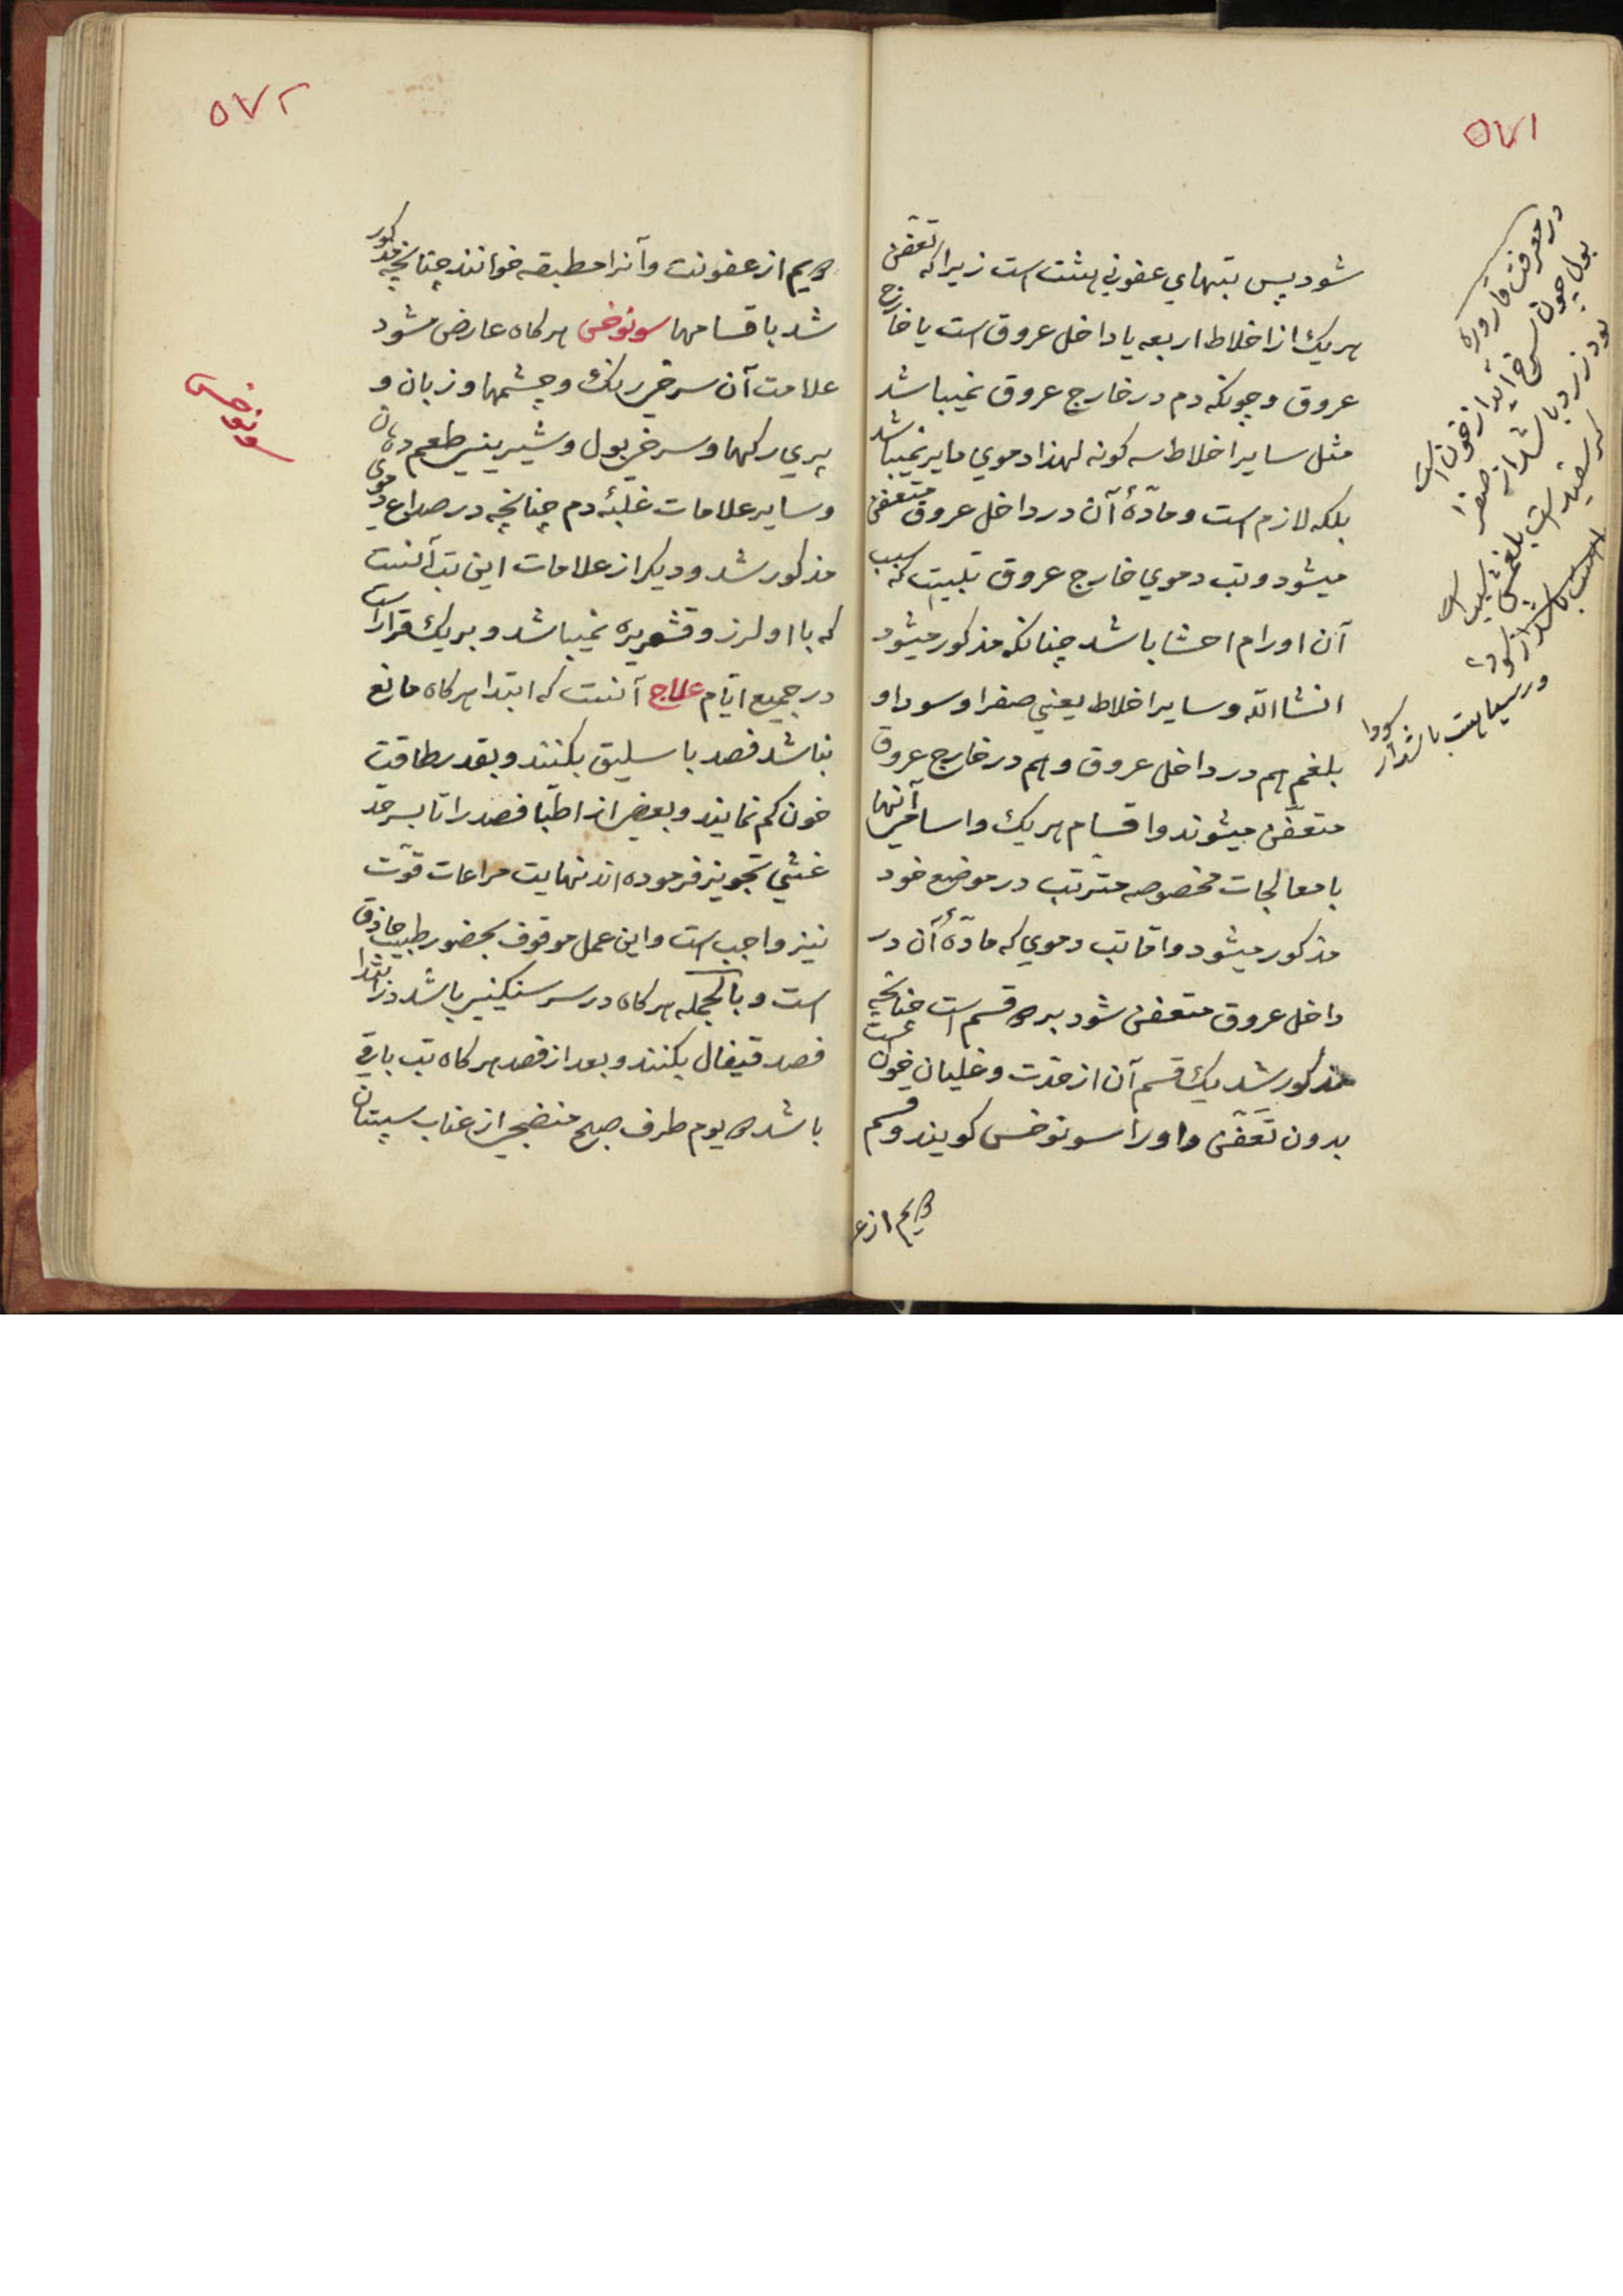 ۵۷۱
شود پس تبهاي عفوني هشت است زیرا که تعفن
هریك از اخلاط اربعه یا داخل عروق است یا خارج
عروق و چونکه دم در خارج عروق نمیباشد
مثل سایر اخلاط سه کونه لهذا دموي دایر نمیباشد
بلکه لازم است و مادّۀ آن در داخل عروق متعفن
میشود و تب دموي خارج عروق تبیست که سبب
آن اورام احشا باشد چنانکه مذکور میشود
انشاالله و سایر اخلاط یعني صفرا و سودا و
بلغم هم در داخل عروق و هم در خارج عروق
متعفّن میشوند و اقسام هریك و اسامي آنها
با معالجات مخصوصه مترتب در موضع خود
مذکور میشود و اما تب دموي که مادّۀ آن در
داخل عروق متعفن شود بر ۲ قسم است چنانچه
مذکور شد یك قسم آن از حدت و غلیان خون است
بدون تَعَفّن و او را سونوخس کویند و قسم
۲یم از ع
در معرفت قاروره
بول چون سرخ آید از خون است
بود زرد باشد از صفرا
کر سفید است بلغمش سبب است
ور سیاهست باشد از سودا
۵۷۲
۲یم از عفونت و آنرا مطبقه خوانند چنانچه مذکور
شد باقسامها سونوخس هرکاه عارض شود
علامت آن سرخي رنك و چشمها و زبان و
پري رکها و سرخي بول و شیریني طعم دهان
و سایر علامات غلبۀ دم چنانچه در صداع دموي
مذکور شد و دیکر از علامات این تب آنست
که با او لرز و قشعریره نمیباشد و بر یك قرار است
در جمیع ایّام علاج آنست که ابتدا هرکاه مانع
نباشد فصد باسلیق بکنند و بقدر طاقت
خون کم نمایند و بعضي از اطبّا فصد را تا بسرحدّ
غشي تجویز فرموده اند نهایت مراعات قوّت
نیز واجب است و این عمل موقوف بحضور طبیب حاذق
است و بالجمله هرکاه در سر سنکیني باشد در ابتدا
فصد قیفال بکنند و بعد از فصد هرکاه تب باقي
باشد ۲ یوم طرف صبح منضجي از عناب سپستان
سونوخس